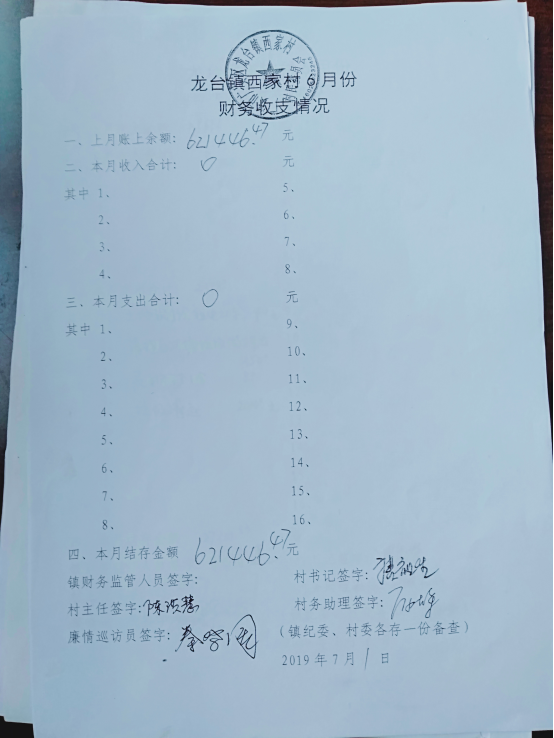 龙台镇西家村
龙台镇西家村6月份
财务收支情况
一、上月账上余额：621446.47 元
二、本月收入合计：0 元
其中 1、 5、
2、 6、
3、 7、
4、 8、
三、本月支出合计：0 元
其中 1、 9、
2、 10、
3、 11、
4、 12、
5、 13、
6、 14、
7、 15、
8、 16、
四、本月结存金额 621446.47元
镇财务监管人员签字： 村书记签字：
村主任签字： 村务助理签字：
廉情巡访员签字： （镇纪委、村委各存一份备查）
2019 年 7 月 1 日